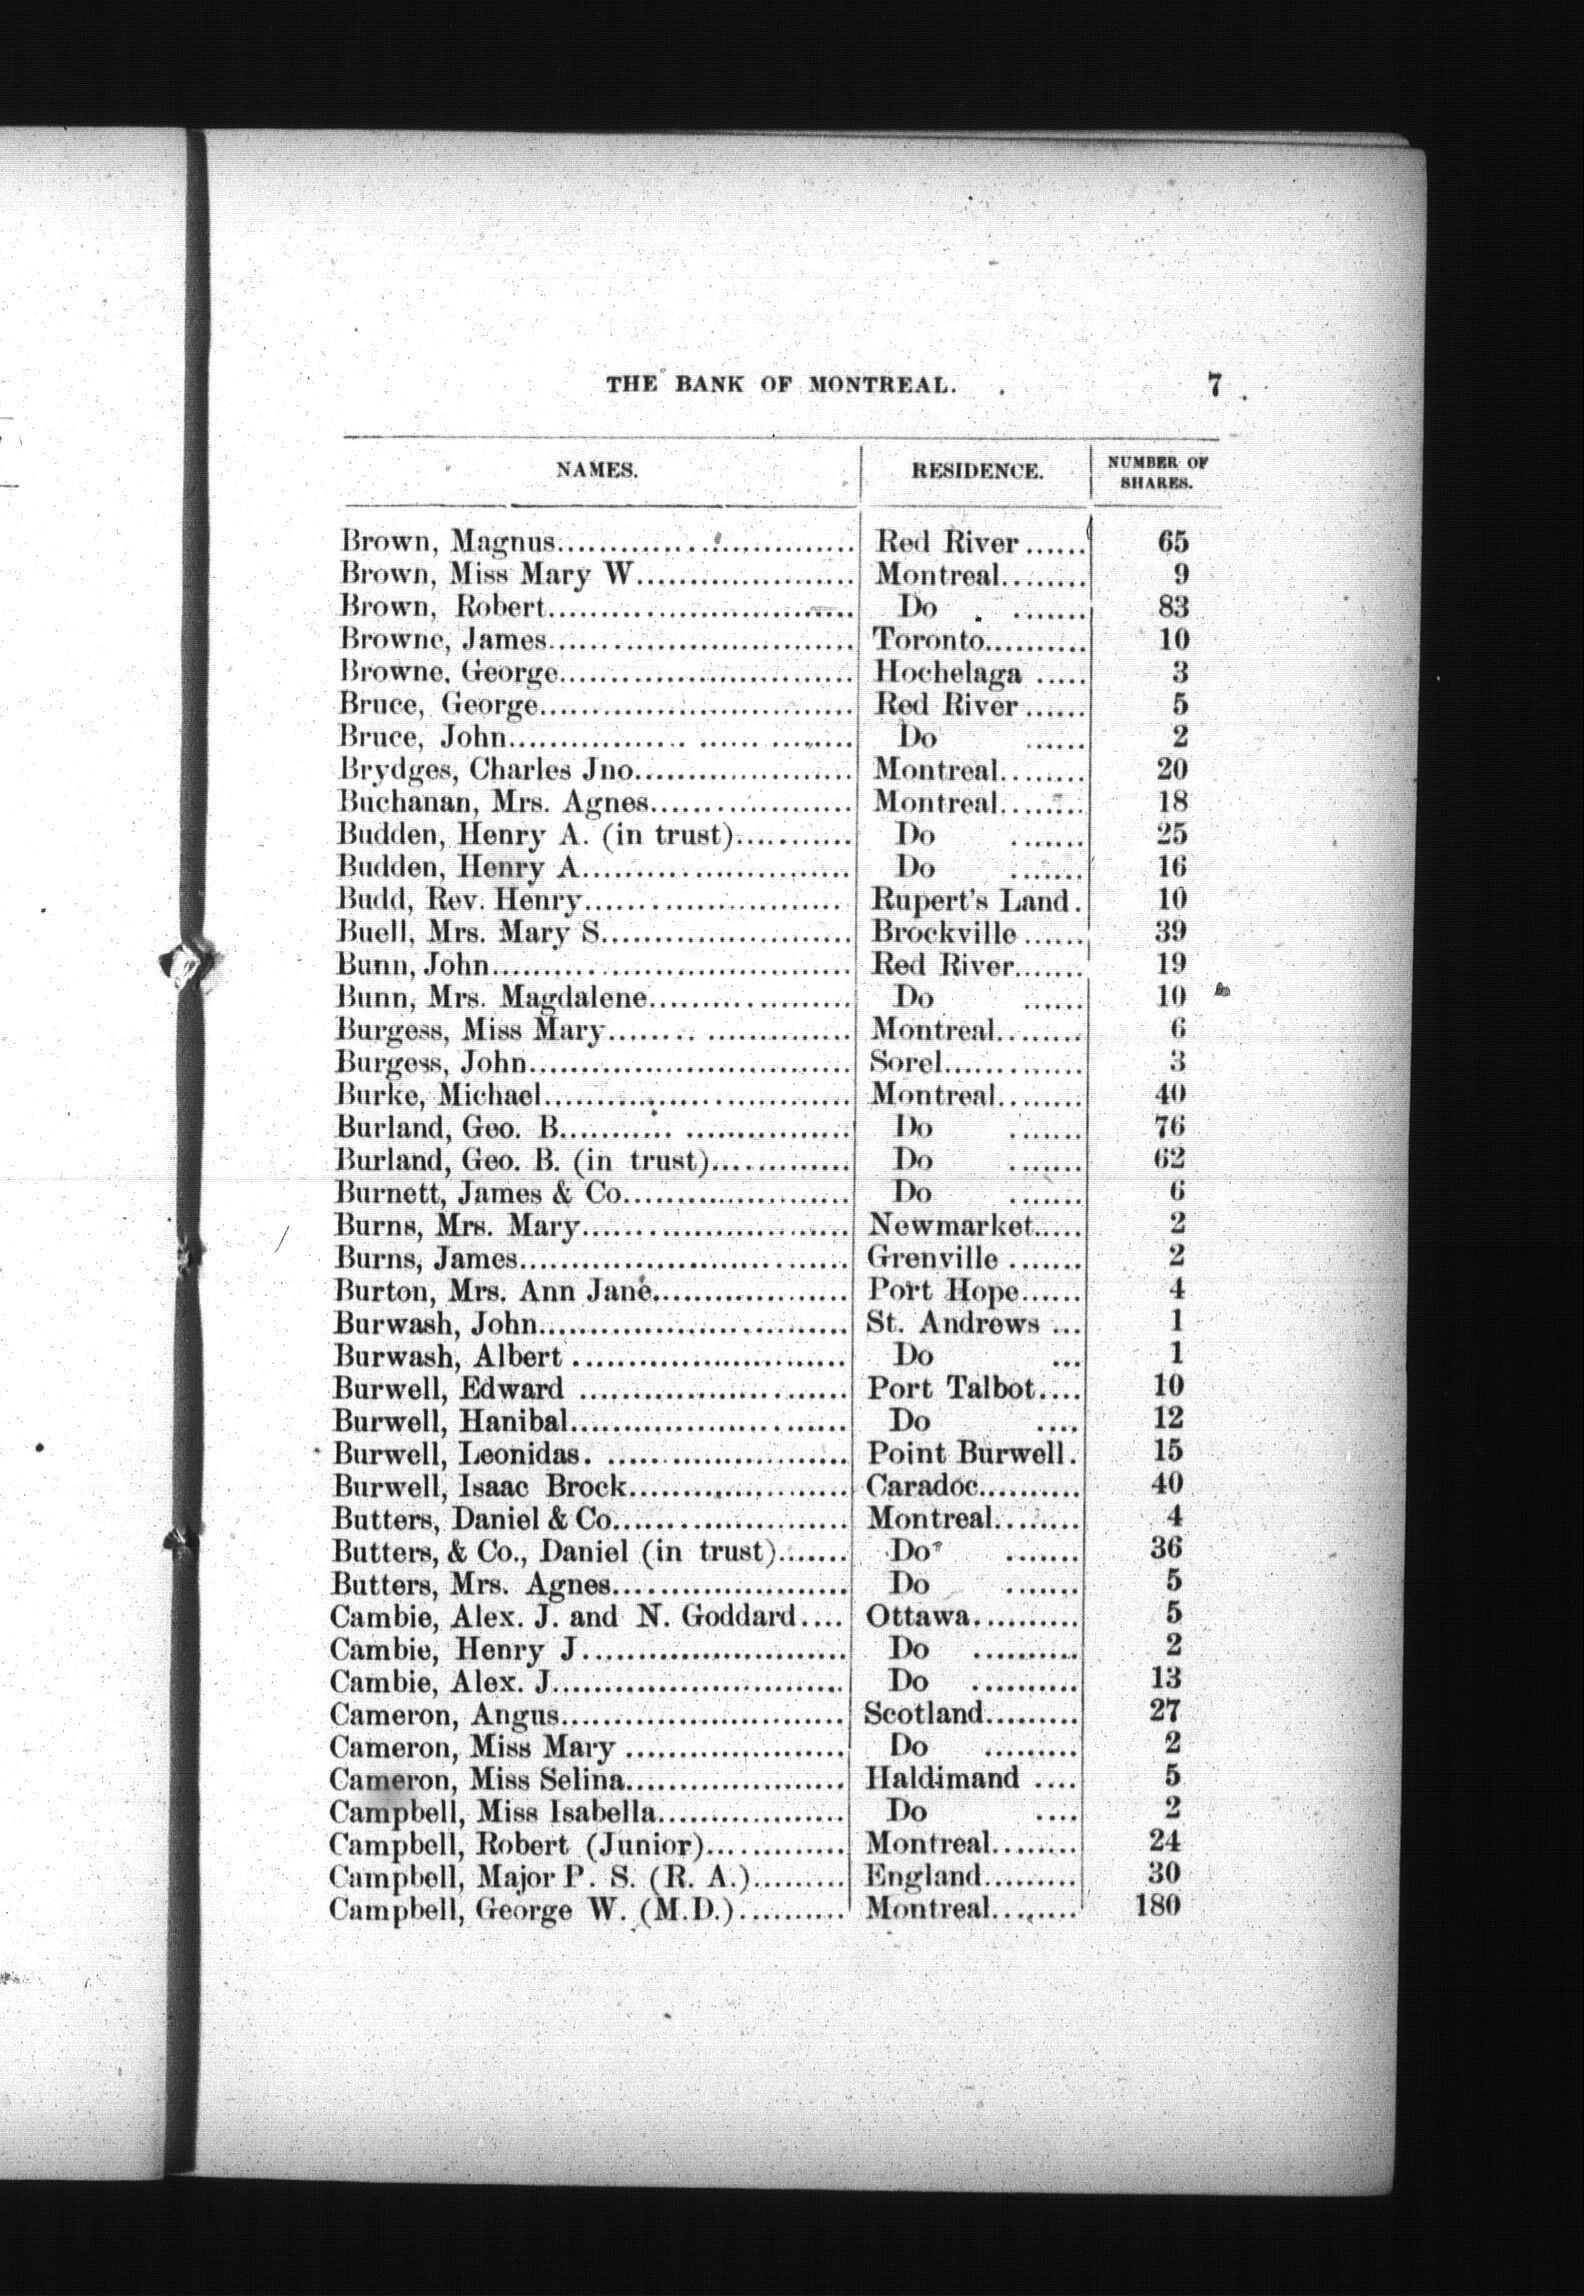 THE BANK OF MONTREAL. 7
NAMES. RESIDENCE. NUMBER OF SHARES.
Brown, Magnus............................ Red River...... 65
Brown, Miss Mary W..................... Montreal........ 9
Brown, Robert............................. Do ....... 83
Browne, James............................. Toronto.......... 10
Browne, George............................ Hochelaga ..... 3
Bruce, George.............................. Red River...... 5
Bruce, John................. ...... ........ Do ...... 2
Brydges, Charles Jno..................... Montreal........ 20
Buchanan, Mrs. Agnes................... Montreal........ 18
Budden, Henry A. (in trust)........... Do ....... 25
Budden, Henry A.......................... Do ....... 16
Budd, Rev. Henry........................ Rupert's Land. 10
Buell, Mrs. Mary S........................ Brockville...... 39
Bunn, John.................................. Red River....... 19
Bunn, Mrs. Magdalene................... Do ...... 10
Burgess, Miss Mary........ .............. Montreal........ 6
Burgess, John............................... Sorel............. 3
Burke, Michael............................. Montreal........ 40
Burland, Geo. B........... ................ Do ....... 76
Burland, Geo. B. (in trust)............. Do ....... 62
Burnett, James & Co...................... Do ....... 6
Burns, Mrs. Mary.......................... Newmarket..... 2
Burns, James................................ Grenville ....... 2
Burton, Mrs. Ann Jane................... Port Hope...... 4
Burwash, John.............................. St. Andrews ... 1
Burwash, Albert .......................... Do ... 1
Burwell, Edward .......................... Port Talbot.... 10
Burwell, Hanibal........................... Do .... 12
Burwell, Leonidas. ....................... Point Burwell. 15
Burwell, Isaac Brock..................... Caradoc.......... 40
Butters, Daniel & Co....................... Montreal........ 4
Butters, & Co., Daniel (in trust)....... Do ....... 36
Butters, Mrs. Agnes....................... Do ....... 5
Cambie, Alex. J. and N. Goddard.... Ottawa.......... 5
Cambie, Henry J.......................... Do .......... 2
Cambie, Alex. J............................ Do .......... 13
Cameron, Angus........................... Scotland......... 27
Cameron, Miss Mary ..................... Do ......... 2
Cameron, Miss Selina..................... Haldimand .... 5
Campbell, Miss Isabella.................. Do .... 2
Campbell, Robert (Junior)............. Montreal........ 24
Campbell, Major P. S. (R. A.)......... England......... 30
Campbell, George W. (M.D.).......... Montreal........ 180